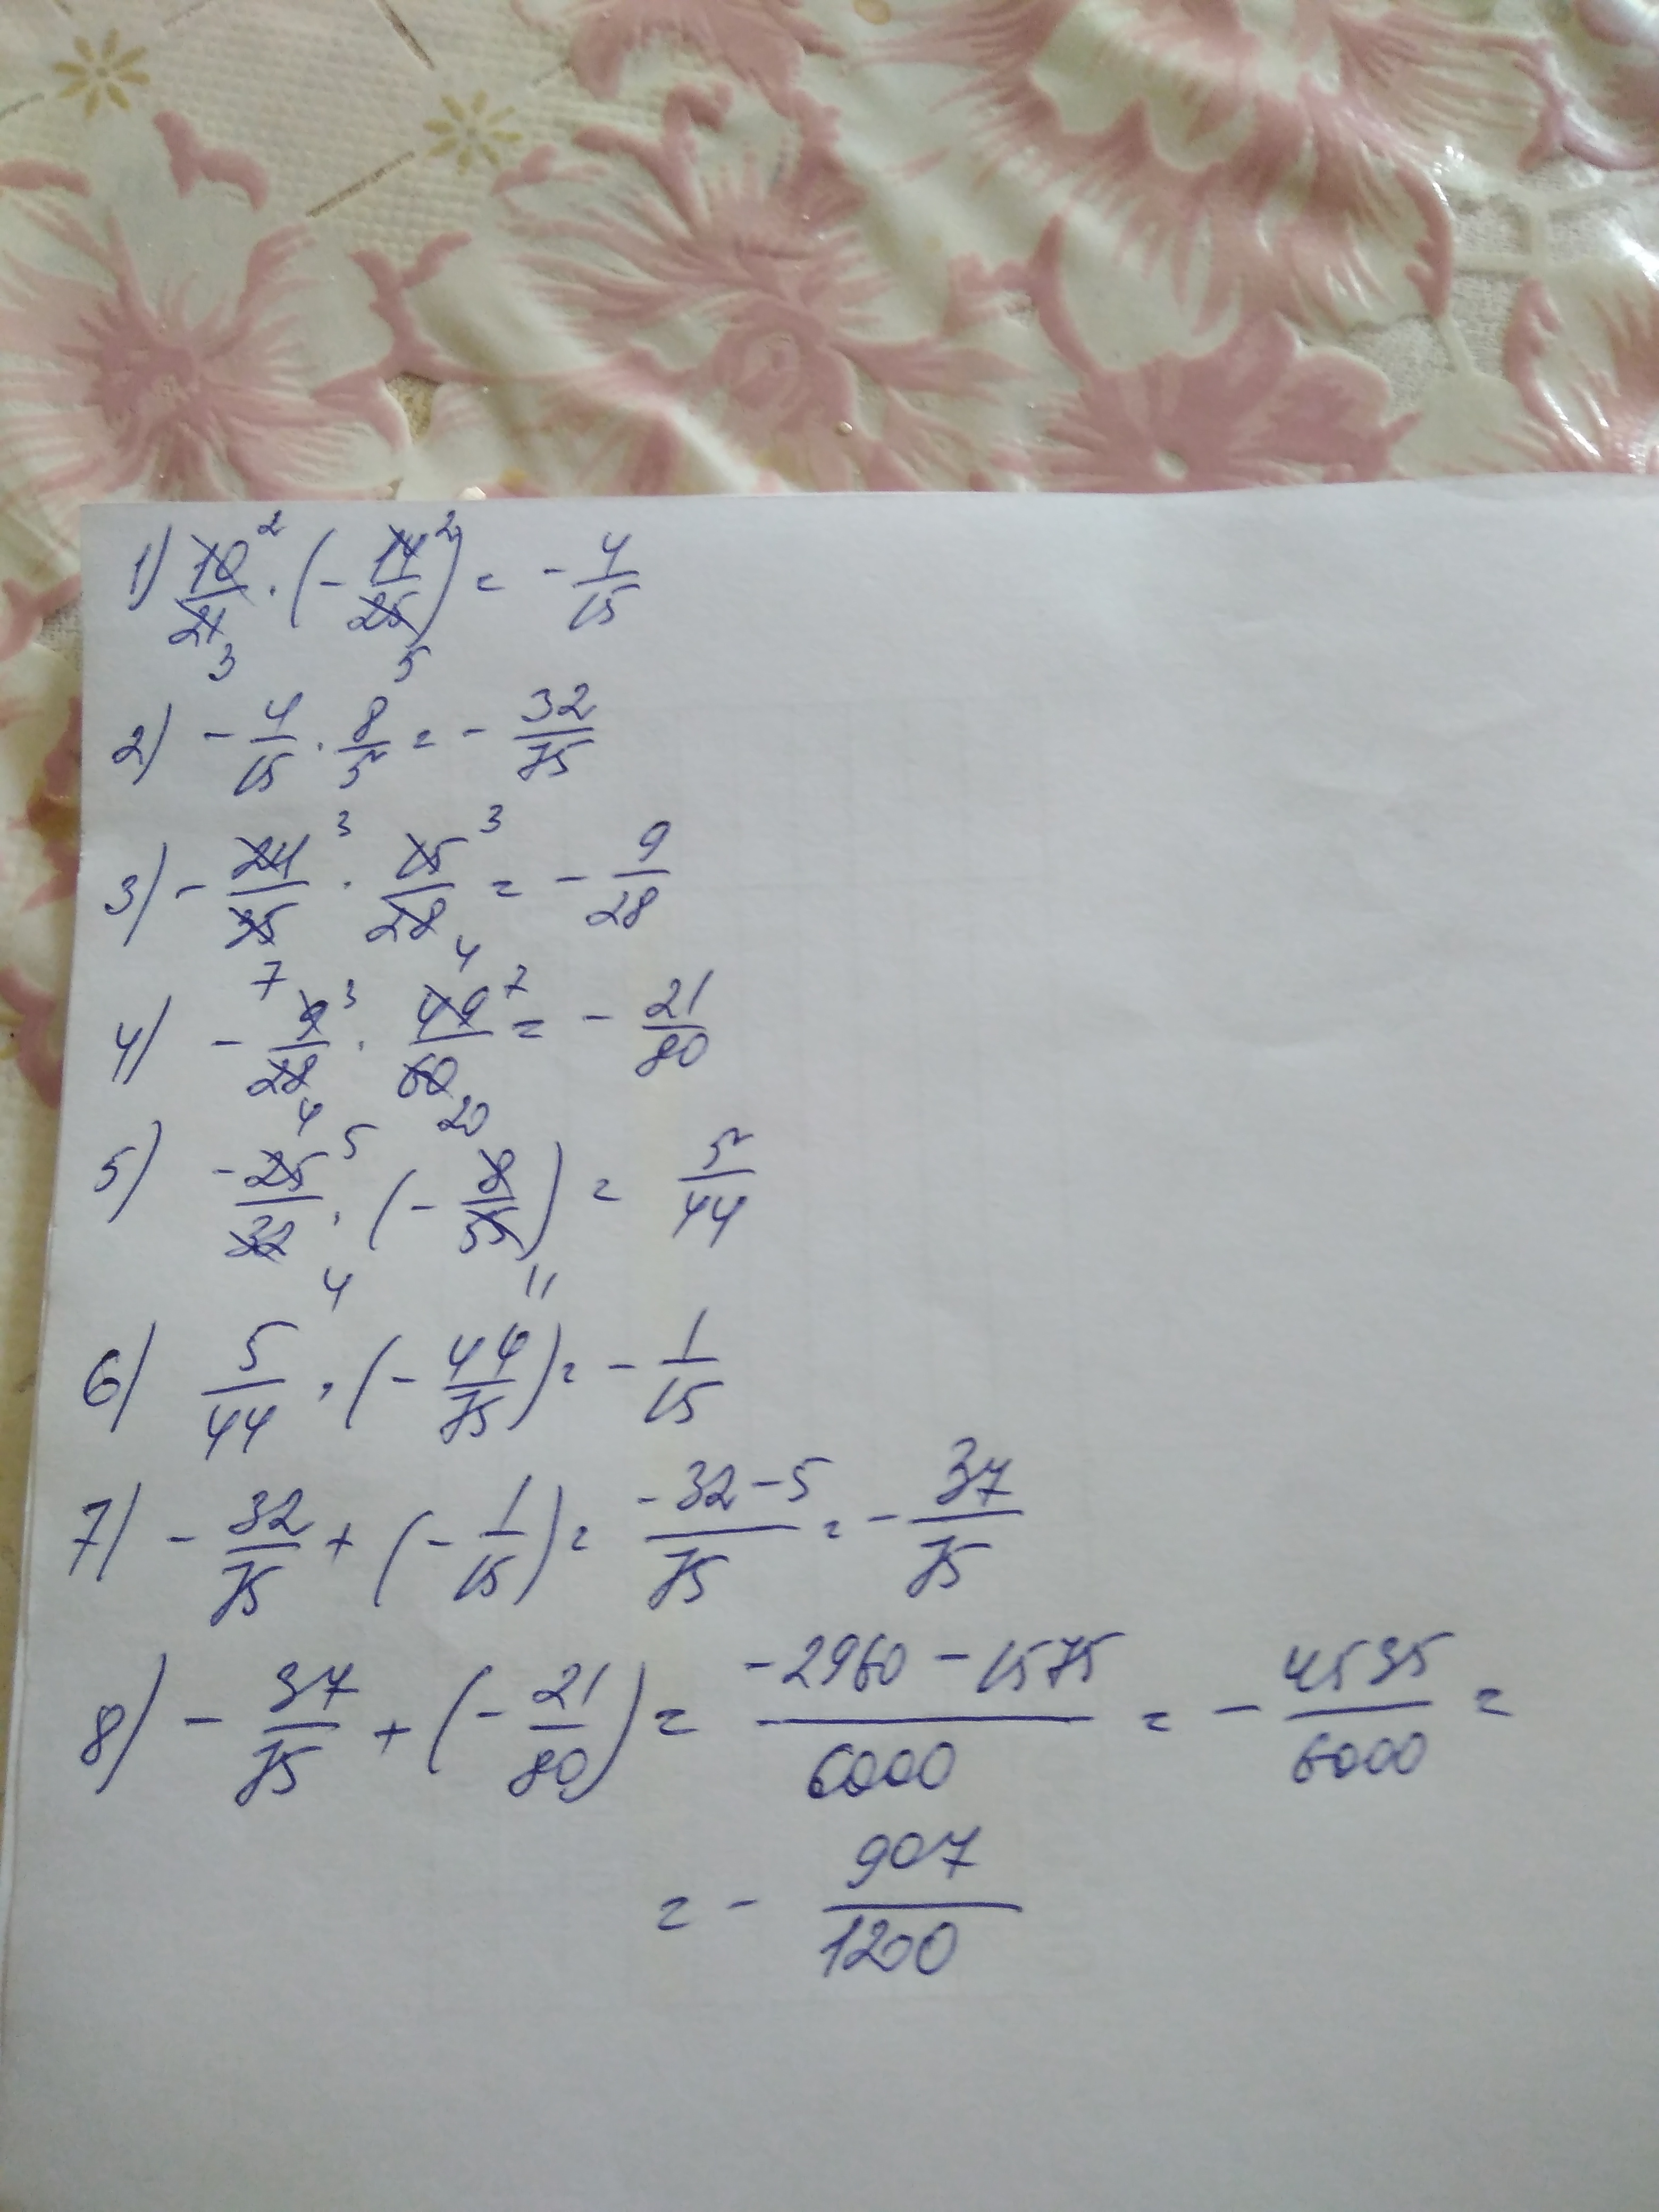 1) 10/21 · (- 14/25) = - 4/15
2) - 4/15 · 8/5 = - 32/75
3) - 21/35 · 15/28 = - 9/28
4) - 9/28 · 49/60 = - 21/80
5) - 25/32 · (- 8/55) = 5/44
6) 5/44 · (- 44/75) = - 1/15
7) - 32/75 + (- 1/15) = (-32-5)/75 = - 37/75
8) - 37/75 + (- 21/80) = (-2960-1575)/6000 = - 4535/6000 =
= - 907/1200